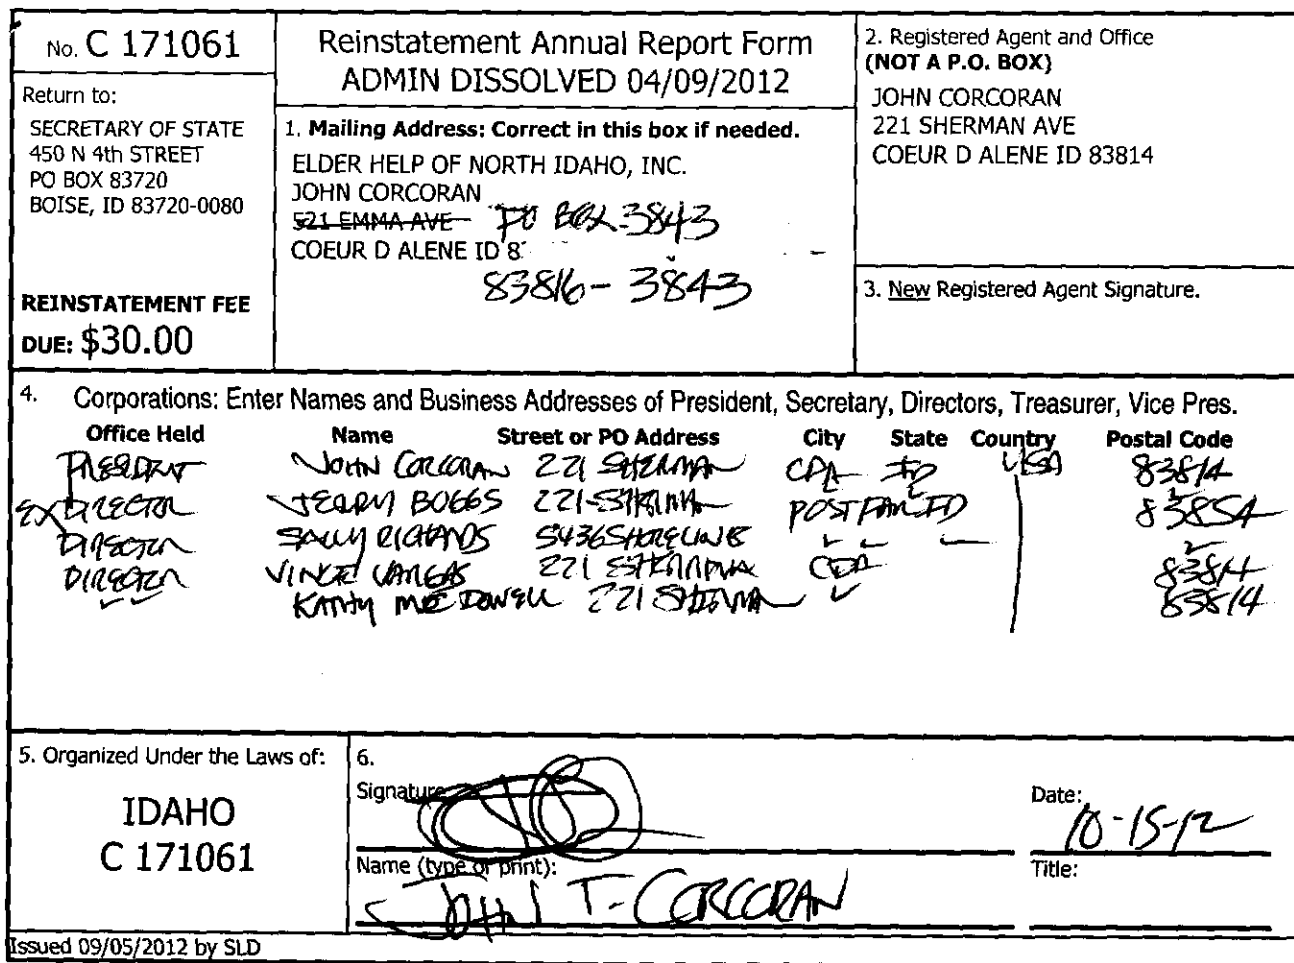 No. C 171061
Return to:
SECRETARY OF STATE
450 N 4th STREET
PO BOX 83720
BOISE, ID 83720-0080
REINSTATEMENT FEE
DUE: $30.00
Reinstatement Annual Report Form
ADMIN DISSOLVED 04/09/2012
1. Mailing Address: Correct in this box if needed.
ELDER HELP OF NORTH IDAHO, INC.
JOHN CORCORAN
521 EMMA AVE PO BOX 3843
COEUR D ALENE ID 8
83816-3843
2. Registered Agent and Office
(NOT A P.O. BOX)
JOHN CORCORAN
221 SHERMAN AVE
COEUR D ALENE ID 83814
3. New Registered Agent Signature.
4. Corporations: Enter Names and Business Addresses of President, Secretary, Directors, Treasurer, Vice Pres.
Office Held Name Street or PO Address City State Country Postal Code
PRESIDENT JOHN CORCORAN 221 SHERMAN CDA ID USA 83814
EX DIRECTOR JERRY BOGGS 221 SHERMAN POST FALLS ID 83854
DIRECTOR SALLY RICHARDS 5436 SHORELINE
DIRECTOR VINCE VARGAS 221 SHERMAN CDA 83814
KATHY MCDOWELL 221 SHERMAN 83814
5. Organized Under the Laws of:
IDAHO
C 171061
6.
Signature
Date:
10-15-12
Name (type or print):
JOHN T. CORCORAN
Title:
Issued 09/05/2012 by SLD